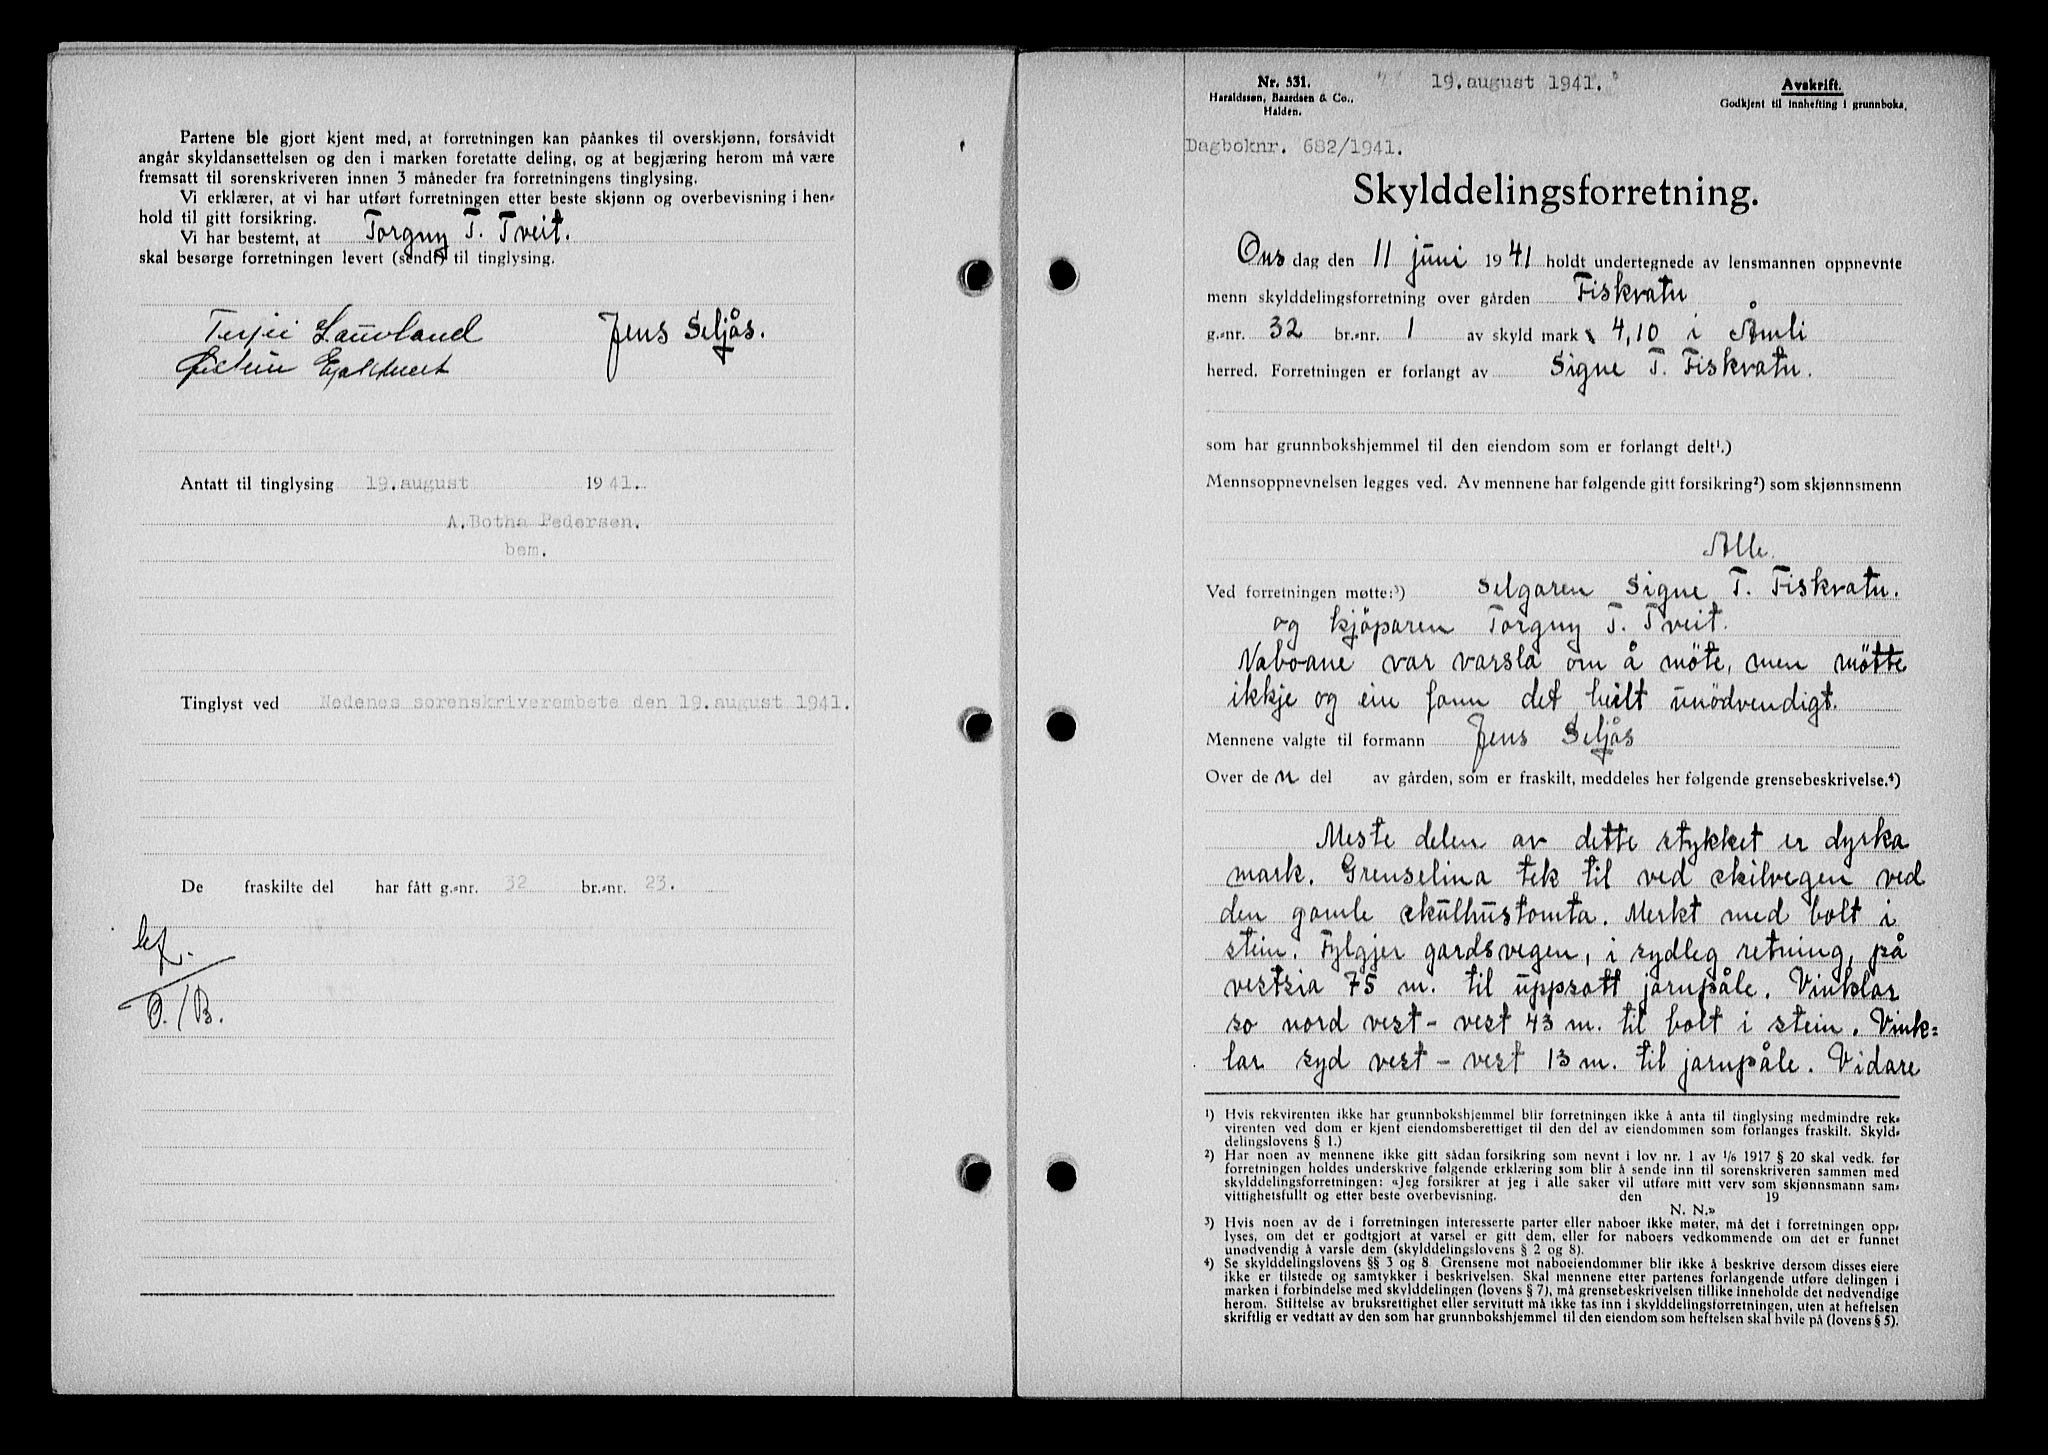 Partene ble gjort kjent med, at forretningen kan påankes til overskjønn, forsåvidt
angår skyldansettelsen og den i marken foretatte deling, og at begjæring herom må være
fremsatt til sorenskriveren innen 3 måneder fra forretningens tinglysing.
Vi erklærer, at vi har utført forretningen etter beste skjønn og overbevisning i hen-
hold til gitt forsikring.
Vi har bestemt, at Torguy T. Tveit.
skal besørge forretningen levert (sendt) til tinglysing.
Terjei Lauvland Jens Seljås.
Øistein
Antatt til tinglysing 19. august 1941.
A. Botha Pedersen.
bem.
Tinglyst ved Nedenes sorenskriverembete den 19. august 1941.
De fraskilte del har fått g.-nr. 32 br.-nr. 23.
O./B.
Nr. 531.
Haraldssøn, Baardsen & Co.,
Halden.
19. august 1941.
Avskrift.
Godkjent til innhefting i grunnboka.
Dagboknr. 682/1941.
Skylddelingsforretning.
Ons dag den 11 juni 1941 holdt undertegnede av lensmannen oppnevnte
menn skylddelingsforretning over gården Fiskvatn
g.-nr. 32 br.-nr. 1 av skyld mark 4,10 i Åmli
herred. Forretningen er forlangt av Signe T. Fiskvatn.
som har grunnbokshjemmel til den eiendom som er forlangt delt¹.)
Mennsoppnevnelsen legges ved. Av mennene har følgende gitt forsikring²) som skjønnsmenn
Alle.
Ved forretningen møtte:³) Selgaren Signe T. Fiskvatn.
og kjøparen Torguy T. Tveit.
Naboane var varsla om å möte, men mötte
ikkje og ein fann det heilt unödvendigt.
Mennene valgte til formann Jens Seljås
Over den del av gården, som er fraskilt, meddeles her følgende grensebeskrivelse.⁴)
Meste delen av dette stykket er dyrka
mark. Grenselina tek til ved skilvegen ved
den gamle skulhustomta. Merkt med bolt i
stein. Fylgjer gardsvegen, i sydleg retning, på
vestsia 75 m. til uppsatt jarnpåle. Vinklar
so nord vest - vest 43 m. til bolt i stein. Vink=
lar syd vest - vest 13 m. til jarnpåle. Vidare
¹) Hvis rekvirenten ikke har grunnbokshjemmel blir forretningen ikke å anta til tinglysing medmindre rek-
virenten ved dom er kjent eiendomsberettiget til den del av eiendommen som forlanges fraskilt. Skyld-
delingslovens § 1.)
²) Har noen av mennene ikke gitt sådan forsikring som nevnt i lov nr. 1 av 1/6 1917 § 20 skal vedk. før
forretningen holdes underskrive følgende erklæring som blir å sende inn til sorenskriveren sammen med
skylddelingsforretningen: «Jeg forsikrer at jeg i alle saker vil utføre mitt verv som skjønnsmann sam-
vittighetsfullt og etter beste overbevisning. den 19
N. N.»
³) Hvis noen av de i forretningen interesserte parter eller naboer ikke møter, må det i forretningen opp-
lyses, om det er godtgjort at varsel er gitt dem, eller for naboers vedkommende om det er funnet
unødvendig å varsle dem (skylddelingslovens § 2 og 8).
⁴) Se skylddelingslovens §§ 3 og 8. Grensene mot naboeiendommer blir ikke å beskrive dersom disses eiere
ikke er tilstede og samtykker i beskrivelsen. Skal mennene etter partenes forlangende utføre delingen i
marken i forbindelse med skylddelingen (lovens § 7), må grensebeskrivelsen tillike inneholde det nødvendige
herom. Stiftelse av bruksrettighet eller servitutt må ikke tas inn i skylddelingsforretningen, uten at heftelsen
skriftlig er vedtatt av den som har grunnbokshjemmel til den eiendom som heftelsen skal hvile på (lovens § 5).